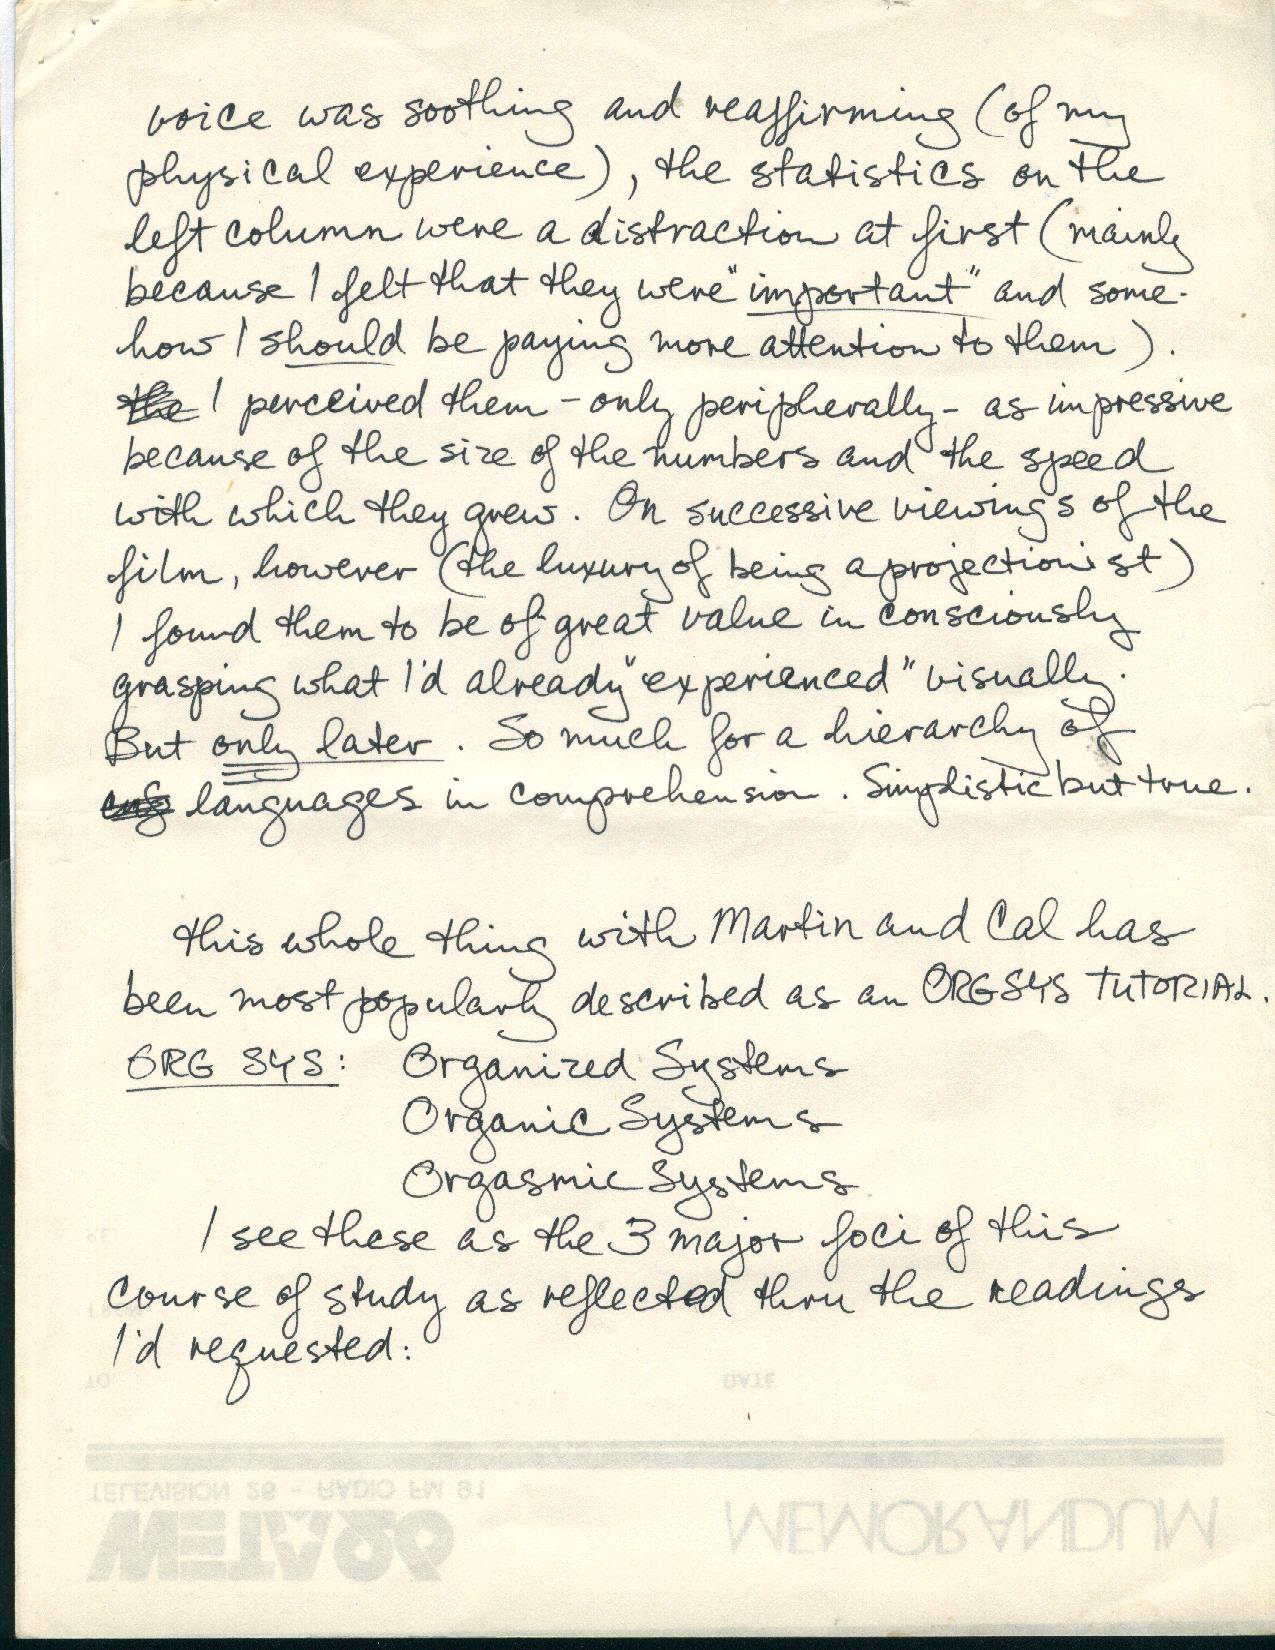 voice was soothing and reaffirming (of my
physical experience), the statistics on the
left column were a distraction at first (mainly
because I felt that they were "important" and some-
how I should be paying more attention to them).
the I perceived them - only peripherally - as impressive
because of the size of the numbers and the speed
with which they grew. On successive viewings of the
film, however (the luxury of being a projectionist)
I found them to be of great value in consciously
grasping what I'd already "experienced" visually.
But only later. So much for a hierarchy of
languages in comprehension. Simplistic but true.
This whole thing with Martin and Cal has
been most popularly described as an ORGSYS TUTORIAL.
ORG SYS: Organized Systems
Organic Systems
Orgasmic Systems
I see these as the 3 major foci of this
course of study as reflected thru the readings
I'd requested:
RE
FROM
TO
DATE
TELEVISION 26 - RADIO FM 91
WETA 26
MEMORANDUM